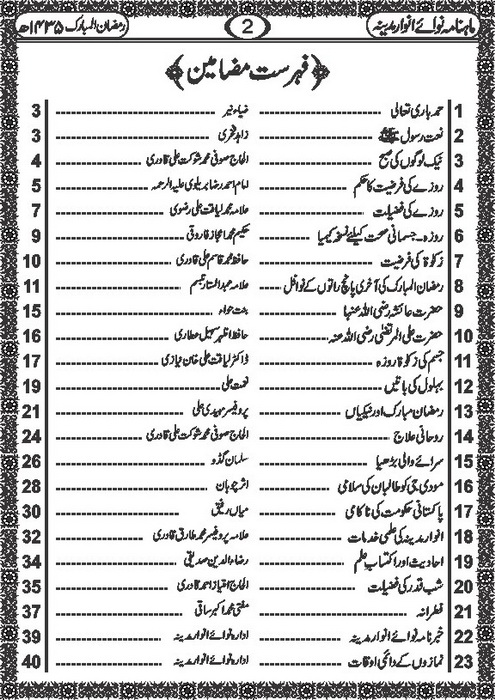 ماہنامہ نوائے انوار مدینہ 2 رمضان المبارک ۱۴۳۵ھ
فہرست مضامین
1 حمد باری تعالی ضیاء نیر 3
2 نعت رسول ﷺ زاہد فخری 3
3 نیک لوگوں کی صبح الحاج صوفی محمد شوکت علی قادری 4
4 روزے کی فرضیت کا حکم امام احمد رضا بریلوی علیہ الرحمہ 5
5 روزے کی فضیلات علامہ محمد لیاقت علی رضوی 7
6 روزہ۔جسمانی صحت کیلئے نسخہ کیمیا حکیم محمد اعجاز فاروقی 9
7 زکوۃ کی فرضیت حافظ محمد قاسم علی قادری 10
8 رمضان المبارک کی آخری پانچ راتوں کے نوافل علامہ عبدالستار تبسم 11
9 حضرت عائشہ رضی اللہ عنہا بنت حواء 15
10 حضرت علی المرتضی رضی اللہ عنہ حافظ اظہر سہیل عطاری 16
11 جسم کی زکوۃ روزہ ڈاکٹر لیاقت علی خان نیازی 17
12 بہلول کی باتیں نعمت علی 19
13 رمضان مبارک اور نیکیاں پروفیسر مہدی علی 21
14 روحانی علاج الحاج صوفی محمد شوکت علی قادری 24
15 سرائے والی بڑھیا سلمان گڈو 26
16 مودی جی کو طالبان کی سلامی اثر چوہان 28
17 پاکستانی حکومت کی ناکامی میاں رفیق 30
18 انوار مدینہ کی علمی خدمات علامہ پروفیسر محمد طارق قادری 32
19 احادیث اور اکتساب علم رضاء الدین صدیقی 34
20 شب قدر کی فضیلات الحاج امتیاز احمد قادری 35
21 فطرانہ مفتی محمد اکبر ساقی 37
22 خبرنامہ نوائے انوار مدینہ ادارہ نوائے انوار مدینہ 39
23 نمازوں کے دائمی اوقات ادارہ نوائے انوار مدینہ 40